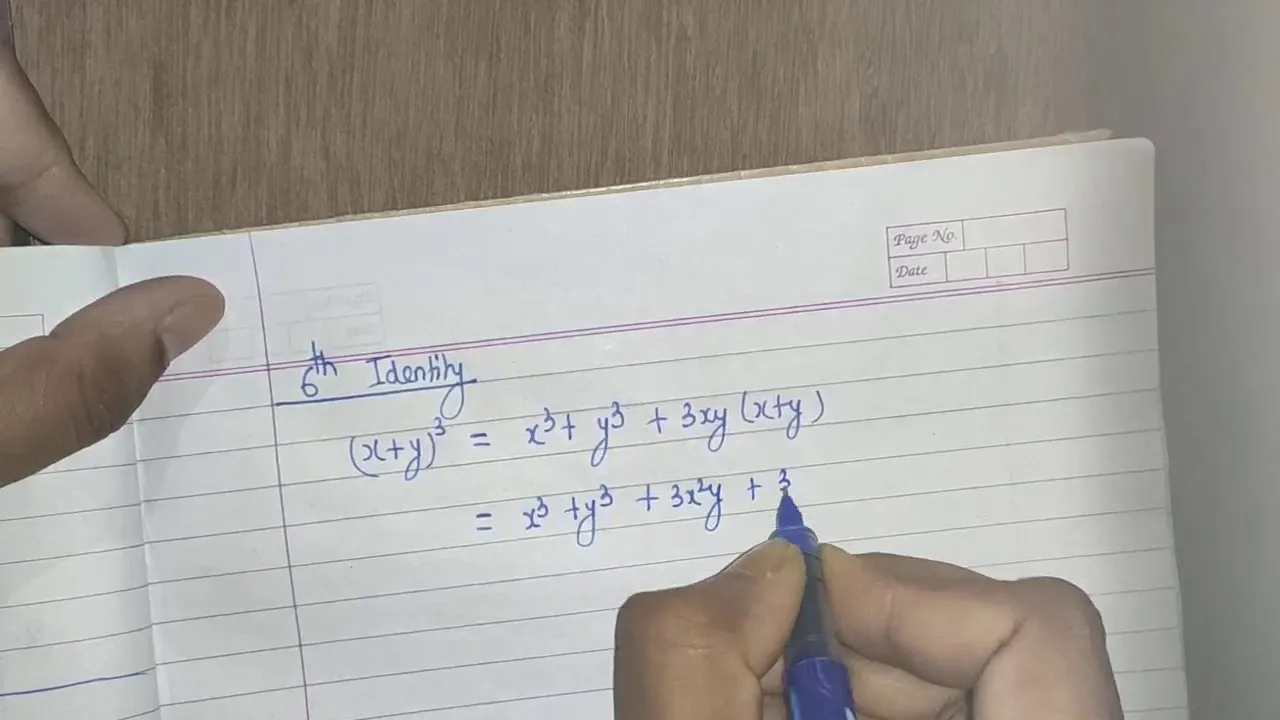 Page No.
Date
6th Identity
(x+y)³ = x³ + y³ + 3xy (x+y)
= x³ + y³ + 3x²y + 3